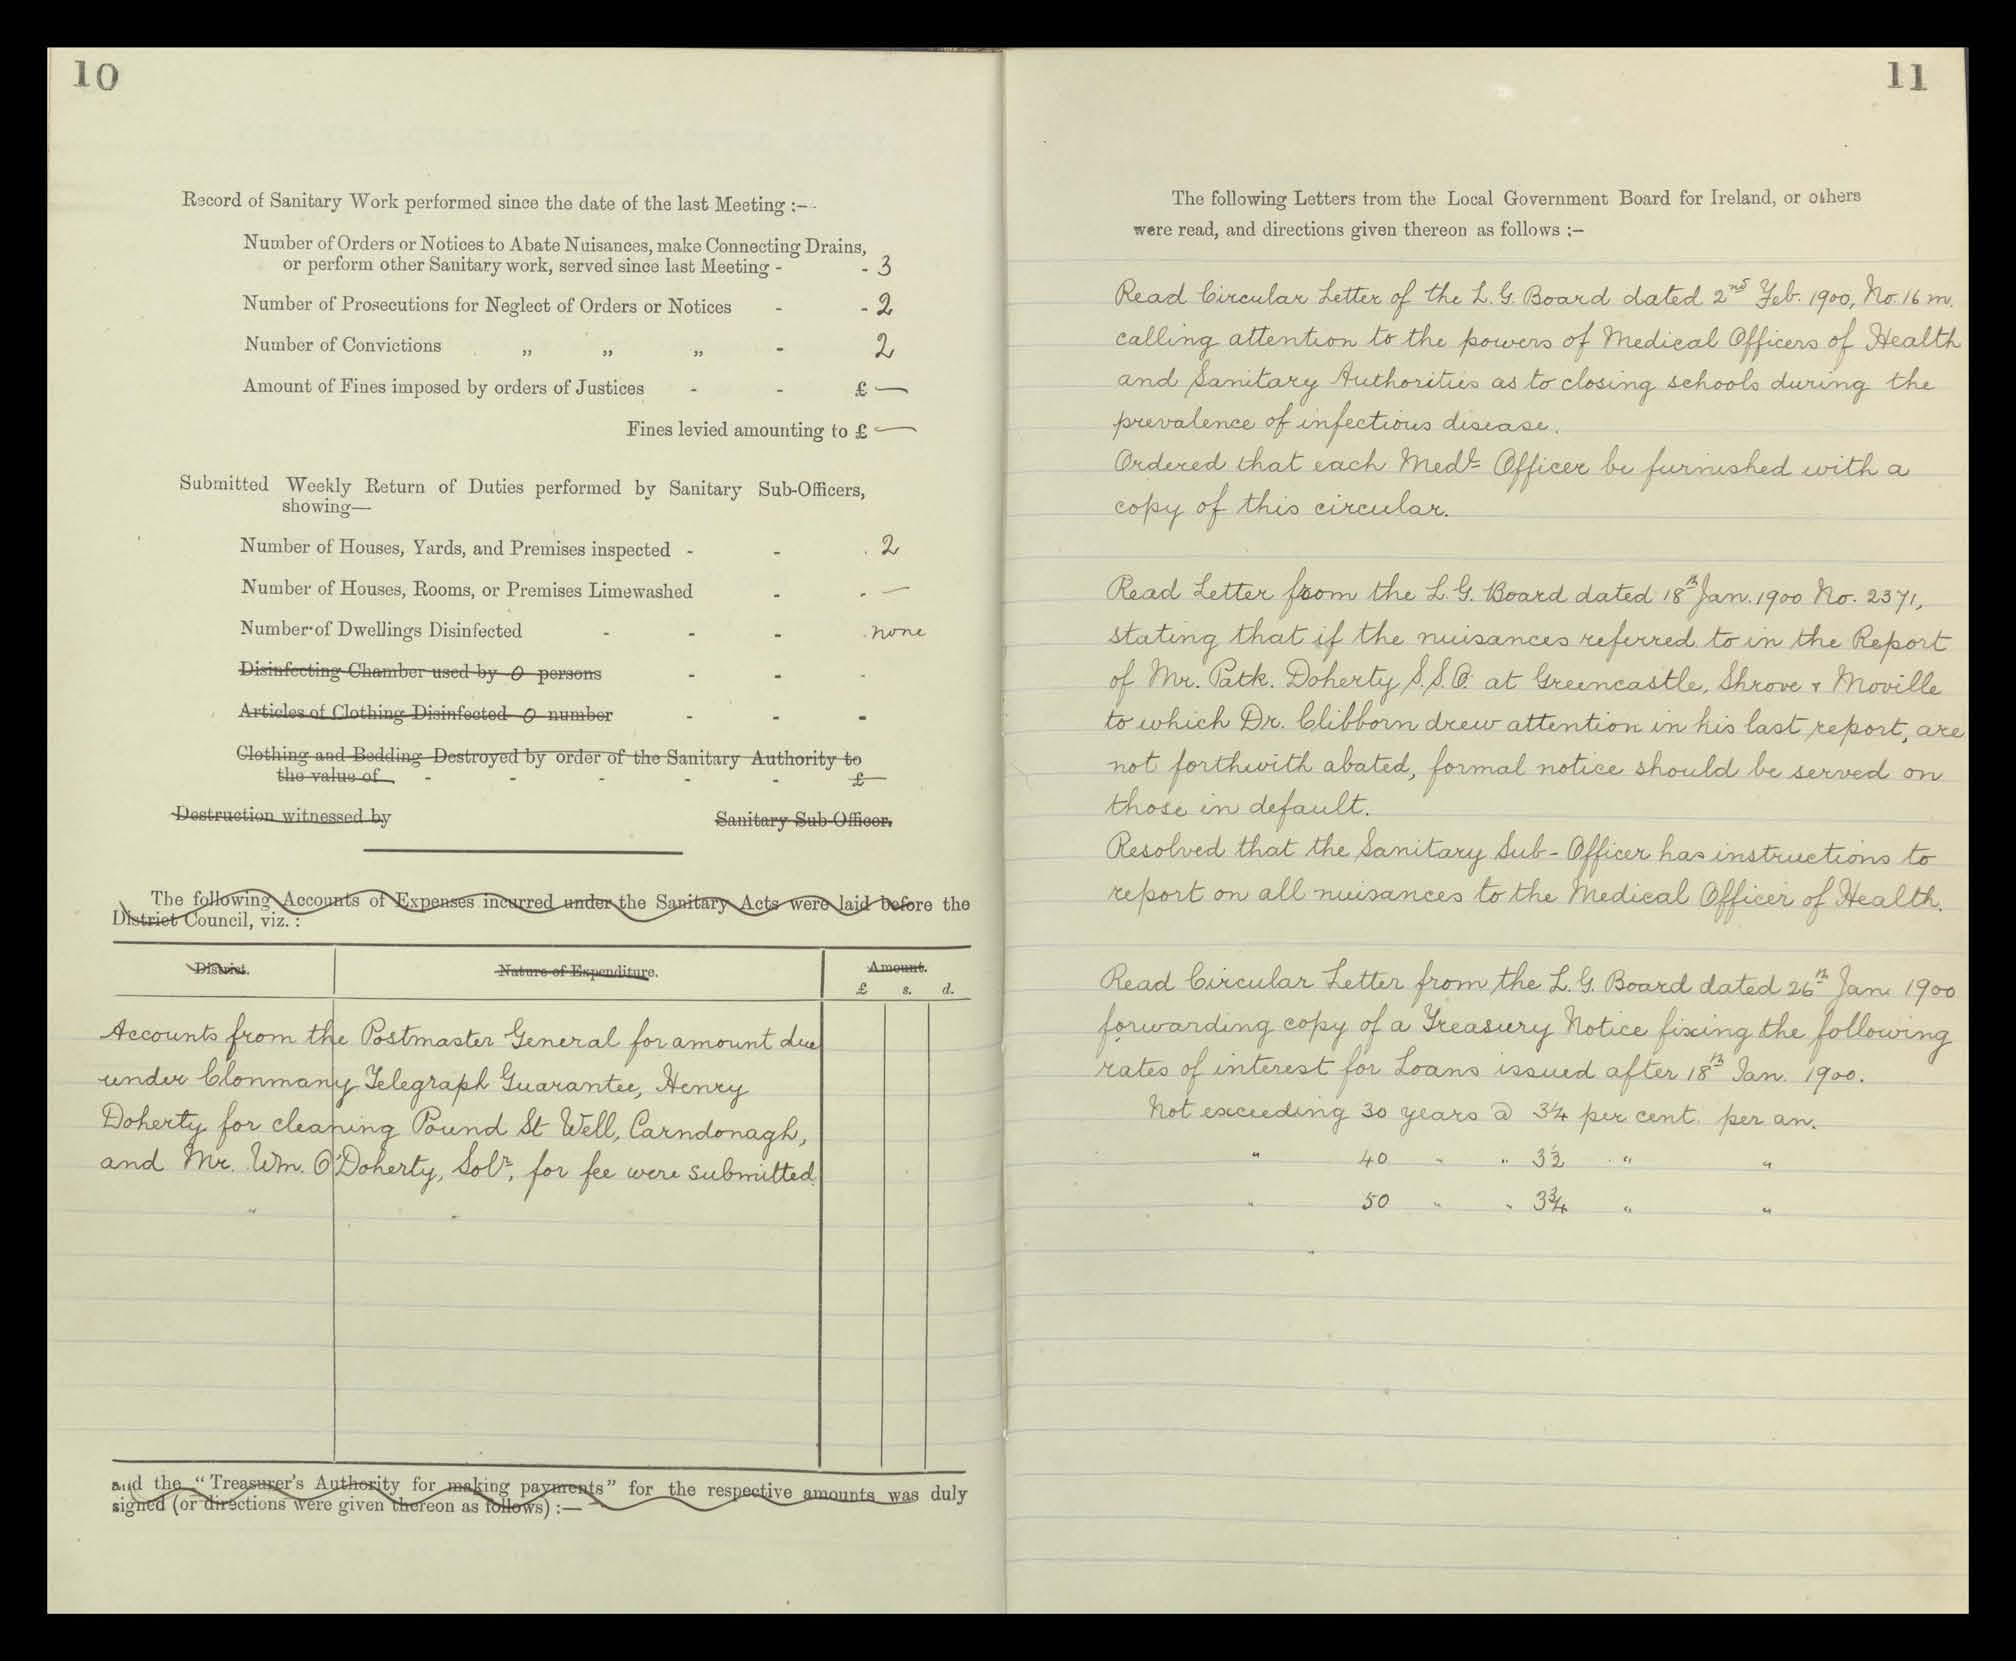 10
Record of Sanitary Work performed since the date of the last Meeting :—
Number of Orders or Notices to Abate Nuisances, make Connecting Drains,
or perform other Sanitary work, served since last Meeting - - 3
Number of Prosecutions for Neglect of Orders or Notices - - 2
Number of Convictions „ „ „ - 2
Amount of Fines imposed by orders of Justices - - £ —
Fines levied amounting to £ —
Submitted Weekly Return of Duties performed by Sanitary Sub-Officers,
showing—
Number of Houses, Yards, and Premises inspected - - 2
Number of Houses, Rooms, or Premises Limewashed - - —
Number of Dwellings Disinfected - - - none
Disinfecting Chamber used by 0 persons - - -
Articles of Clothing Disinfected 0 number - - -
Clothing and Bedding Destroyed by order of the Sanitary Authority to
the value of - - - - - £
Destruction witnessed by Sanitary Sub-Officer.
The following Accounts of Expenses incurred under the Sanitary Acts were laid before the
District Council, viz. :
District. Nature of Expenditure. Amount.
£ s. d.
Accounts from the Postmaster General for amount due
under Clonmany Telegraph Guarantee, Henry
Doherty for cleaning Pound St Well, Carndonagh,
and Mr. Wm. O'Doherty, Solr, for fee were submitted.
and the "Treasurer's Authority for making payments" for the respective amounts was duly
signed (or directions were given thereon as follows) :—
11
The following Letters from the Local Government Board for Ireland, or others
were read, and directions given thereon as follows :—
Read Circular Letter of the L.G. Board dated 2nd Feb. 1900, No. 16 m.
calling attention to the powers of Medical Officers of Health
and Sanitary Authorities as to closing schools during the
prevalence of infectious disease.
Ordered that each Medl Officer be furnished with a
copy of this circular.
Read Letter from the L.G. Board dated 18th Jan. 1900 No. 2371,
stating that if the nuisances referred to in the Report
of Mr. Patk. Doherty S.S.O. at Greencastle, Shrove & Moville
to which Dr. Clibborn drew attention in his last report, are
not forthwith abated, formal notice should be served on
those in default.
Resolved that the Sanitary Sub-Officer has instructions to
report on all nuisances to the Medical Officer of Health.
Read Circular Letter from the L.G. Board dated 26th Jan. 1900
forwarding copy of a Treasury Notice fixing the following
rates of interest for Loans issued after 18th Jan. 1900.
Not exceeding 30 years @ 3¼ per cent. per an.
" 40 " " 3½ " "
" 50 " " 3¾ " "